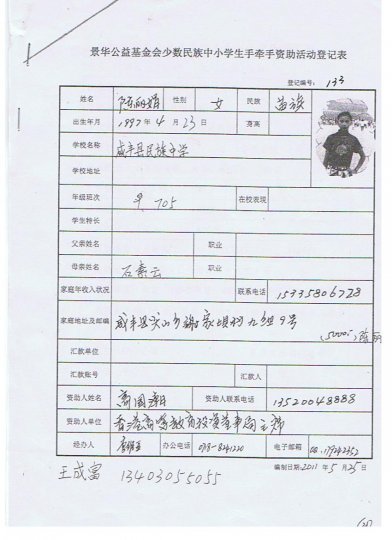 景华公益基金会少数民族中小学生手牵手资助活动登记表
登记编号: 133
姓名 陈丽娟 性别 女 民族 苗族
出生年月 1997年4月23日 身高
学校名称 咸丰县民族中学
学校地址
年级班次 705 在校表现
学生特长
父亲姓名 职业
母亲姓名 石素云 职业
家庭年收入状况 联系电话 15335806728
家庭地址及邮编 咸丰县尖山乡 家坝村九组9号
汇款单位
汇款账号 汇款人
资助人姓名 资助人联系电话 13520048888
资助人单位 香港高等教育投资 主席
经办人 办公电话 电子邮箱
编制日期:2011年5月25日
王成富 13403055055